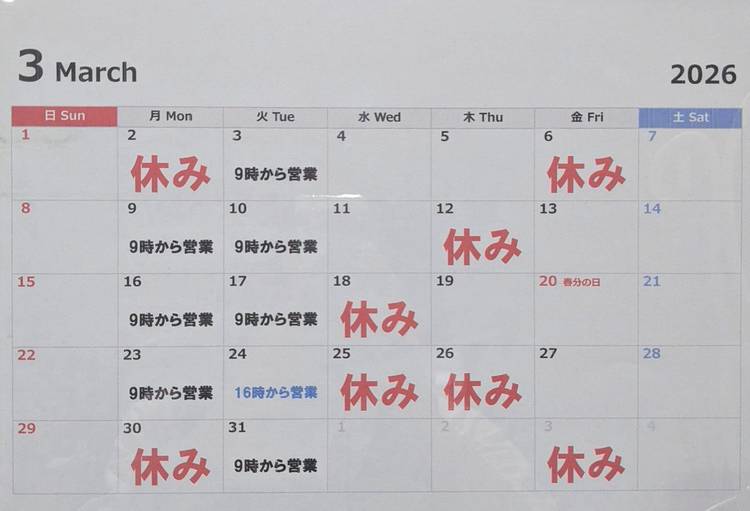 3 March 2026
日 Sun 月 Mon 火 Tue 水 Wed 木 Thu 金 Fri 土 Sat
1 2 3 4 5 6 7
休み 9時から営業 休み
8 9 10 11 12 13 14
9時から営業 9時から営業 休み
15 16 17 18 19 20 春分の日 21
9時から営業 9時から営業 休み
22 23 24 25 26 27 28
9時から営業 16時から営業 休み 休み
29 30 31 1 2 3 4
休み 9時から営業 休み